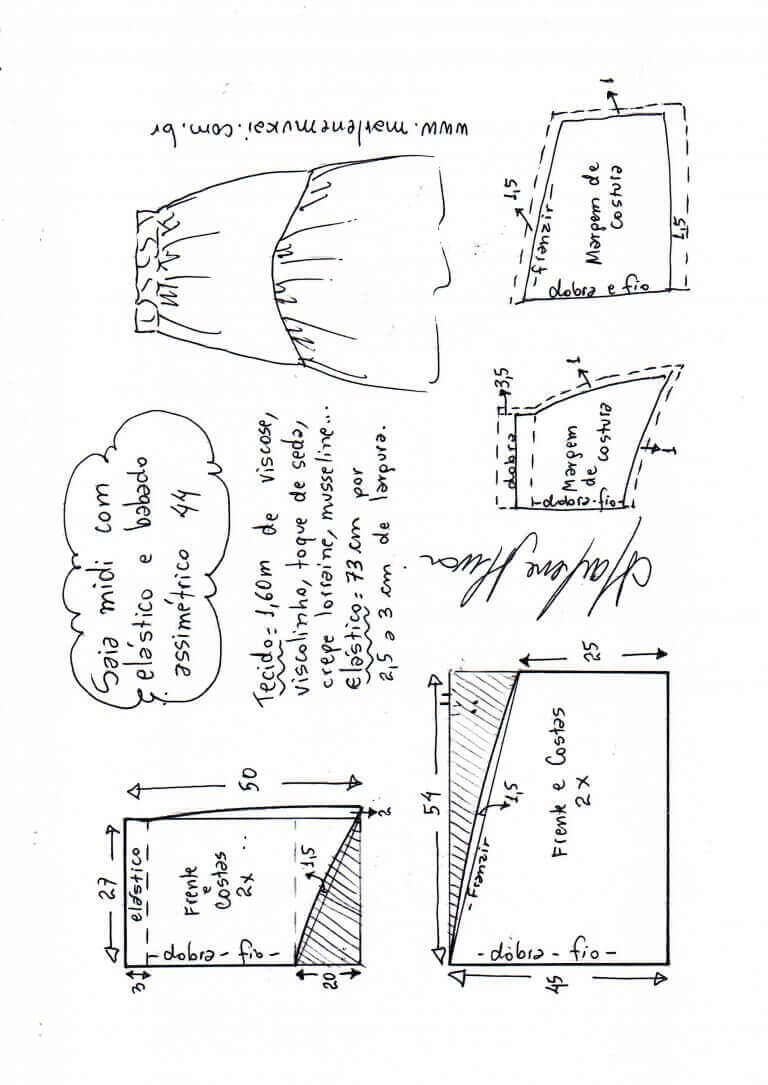 www.marlenemukai.com.br
Saia midi com
elástico e babado
assimétrico 44
Tecido= 1,60m de viscose,
viscolinho, toque de seda,
crepe lorraine, musseline...
Elástico= 73 cm por
2,5 a 3 cm de largura.
27
50
elástico
Frente
e
Costas
2x
-dobra-fio-
3
20
1,5
2
54
25
45
-Franzir
1,5
Frente e Costas
2x
-dobra-fio-
3,5
dobra
Margem
de costura
-dobra-fio-
1
1
1,5
-franzir-
Margem de
costura
dobra e fio
1
1,5
Marlene Mukai